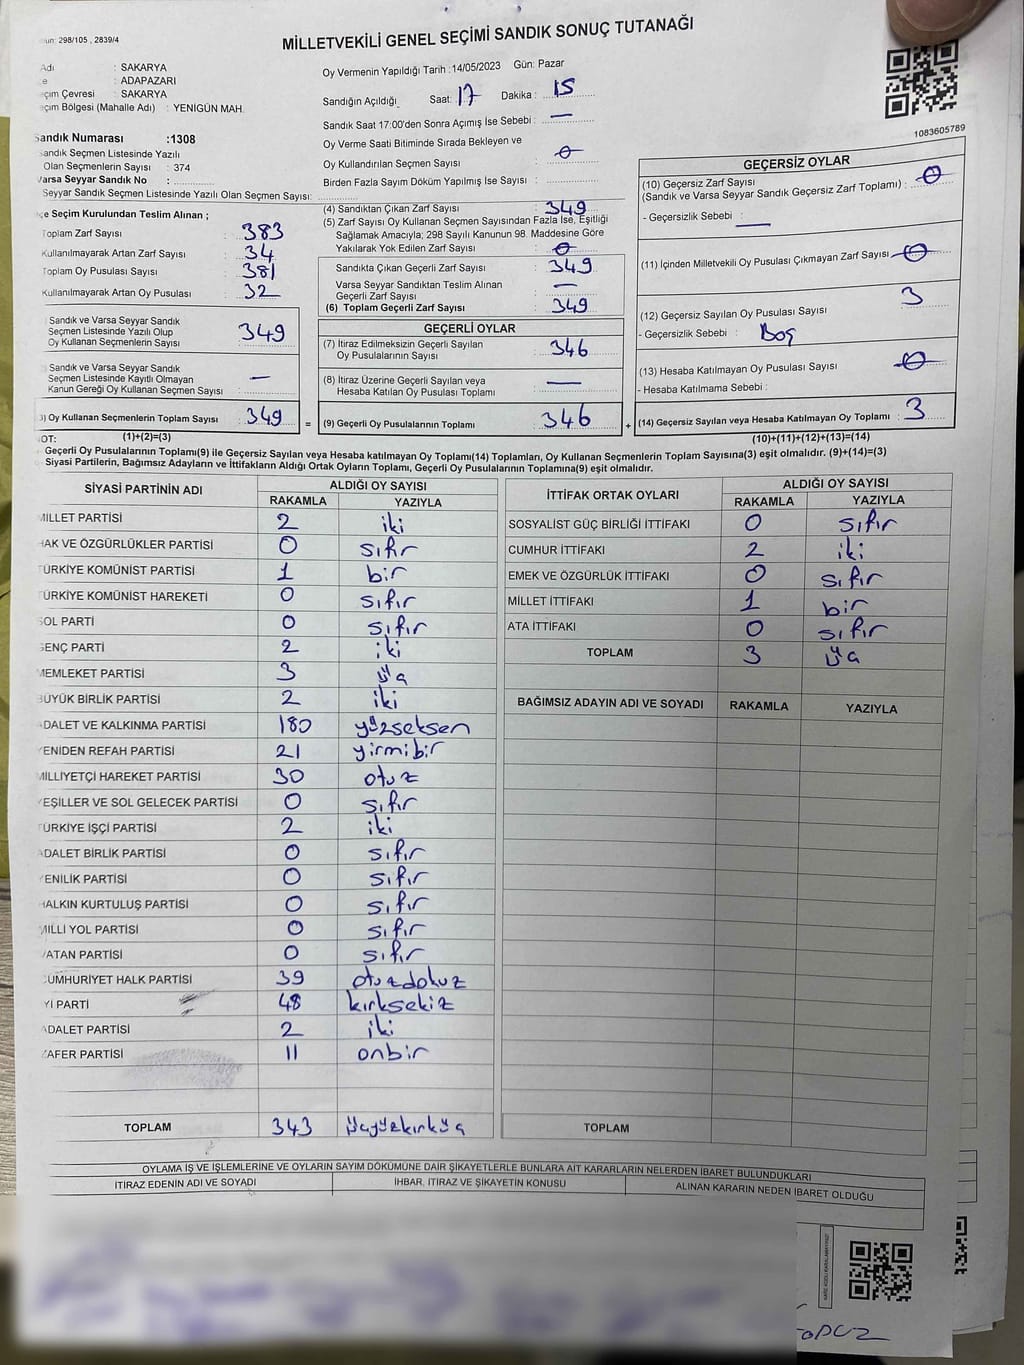 298/105 , 2839/4
MİLLETVEKİLİ GENEL SEÇİMİ SANDIK SONUÇ TUTANAĞI
Adı : SAKARYA
: ADAPAZARI
Çevresi : SAKARYA
Bölgesi (Mahalle Adı) : YENİGÜN MAH.
Sandık Numarası :1308
Sandık Seçmen Listesinde Yazılı
Olan Seçmenlerin Sayısı : 374
Varsa Seyyar Sandık No :
Seyyar Sandık Seçmen Listesinde Yazılı Olan Seçmen Sayısı:
Oy Vermenin Yapıldığı Tarih :14/05/2023 Gün: Pazar
Sandığın Açıldığı Saat: 17 Dakika : 15
Sandık Saat 17:00'den Sonra Açımış İse Sebebi : —
Oy Verme Saati Bitiminde Sırada Bekleyen ve
Oy Kullandırılan Seçmen Sayısı : 0
Birden Fazla Sayım Döküm Yapılmış İse Sayısı :
1083605789
Seçim Kurulundan Teslim Alınan ;
Toplam Zarf Sayısı : 383
Kullanılmayarak Artan Zarf Sayısı : 34
Toplam Oy Pusulası Sayısı : 381
Kullanılmayarak Artan Oy Pusulası : 32
Sandık ve Varsa Seyyar Sandık
Seçmen Listesinde Yazılı Olup
Oy Kullanan Seçmenlerin Sayısı : 349
Sandık ve Varsa Seyyar Sandık
Seçmen Listesinde Kayıtlı Olmayan
Kanun Gereği Oy Kullanan Seçmen Sayısı : —
3) Oy Kullanan Seçmenlerin Toplam Sayısı : 349
(1)+(2)=(3)
(4) Sandıktan Çıkan Zarf Sayısı : 349
(5) Zarf Sayısı Oy Kullanan Seçmen Sayısından Fazla İse, Eşitliği
Sağlamak Amacıyla; 298 Sayılı Kanunun 98. Maddesine Göre
Yakılarak Yok Edilen Zarf Sayısı : 0
Sandıkta Çıkan Geçerli Zarf Sayısı : 349
Varsa Seyyar Sandıktan Teslim Alınan
Geçerli Zarf Sayısı : —
(6) Toplam Geçerli Zarf Sayısı : 349
GEÇERLİ OYLAR
(7) İtiraz Edilmeksizin Geçerli Sayılan
Oy Pusulalarının Sayısı : 346
(8) İtiraz Üzerine Geçerli Sayılan veya
Hesaba Katılan Oy Pusulası Toplamı : —
= (9) Geçerli Oy Pusulalarının Toplamı : 346
GEÇERSİZ OYLAR
(10) Geçersiz Zarf Sayısı
(Sandık ve Varsa Seyyar Sandık Geçersiz Zarf Toplamı) : 0
- Geçersizlik Sebebi : —
(11) İçinden Milletvekili Oy Pusulası Çıkmayan Zarf Sayısı : 0
(12) Geçersiz Sayılan Oy Pusulası Sayısı : 3
- Geçersizlik Sebebi : Boş
(13) Hesaba Katılmayan Oy Pusulası Sayısı : 0
- Hesaba Katılmama Sebebi :
+ (14) Geçersiz Sayılan veya Hesaba Katılmayan Oy Toplamı : 3
(10)+(11)+(12)+(13)=(14)
NOT:
Geçerli Oy Pusulalarının Toplamı(9) ile Geçersiz Sayılan veya Hesaba katılmayan Oy Toplamı(14) Toplamları, Oy Kullanan Seçmenlerin Toplam Sayısına(3) eşit olmalıdır. (9)+(14)=(3)
Siyasi Partilerin, Bağımsız Adayların ve İttifakların Aldığı Ortak Oyların Toplamı, Geçerli Oy Pusulalarının Toplamına(9) eşit olmalıdır.
SİYASİ PARTİNİN ADI ALDIĞI OY SAYISI
RAKAMLA YAZIYLA
MİLLET PARTİSİ 2 iki
HAK VE ÖZGÜRLÜKLER PARTİSİ 0 sıfır
TÜRKİYE KOMÜNİST PARTİSİ 1 bir
TÜRKİYE KOMÜNİST HAREKETİ 0 sıfır
SOL PARTİ 0 sıfır
GENÇ PARTİ 2 iki
MEMLEKET PARTİSİ 3 üç
BÜYÜK BİRLİK PARTİSİ 2 iki
ADALET VE KALKINMA PARTİSİ 180 yüzseksen
YENİDEN REFAH PARTİSİ 21 yirmibir
MİLLİYETÇİ HAREKET PARTİSİ 30 otuz
YEŞİLLER VE SOL GELECEK PARTİSİ 0 sıfır
TÜRKİYE İŞÇİ PARTİSİ 2 iki
ADALET BİRLİK PARTİSİ 0 sıfır
YENİLİK PARTİSİ 0 sıfır
HALKIN KURTULUŞ PARTİSİ 0 sıfır
MİLLİ YOL PARTİSİ 0 sıfır
VATAN PARTİSİ 0 sıfır
CUMHURİYET HALK PARTİSİ 39 otuzdokuz
İYİ PARTİ 48 kırksekiz
ADALET PARTİSİ 2 iki
ZAFER PARTİSİ 11 onbir
TOPLAM 343 üçyüzkırküç
İTTİFAK ORTAK OYLARI ALDIĞI OY SAYISI
RAKAMLA YAZIYLA
SOSYALİST GÜÇ BİRLİĞİ İTTİFAKI 0 sıfır
CUMHUR İTTİFAKI 2 iki
EMEK VE ÖZGÜRLÜK İTTİFAKI 0 sıfır
MİLLET İTTİFAKI 1 bir
ATA İTTİFAKI 0 sıfır
TOPLAM 3 üç
BAĞIMSIZ ADAYIN ADI VE SOYADI RAKAMLA YAZIYLA
TOPLAM
OYLAMA İŞ VE İŞLEMLERİNE VE OYLARIN SAYIM DÖKÜMÜNE DAİR ŞİKAYETLERLE BUNLARA AİT KARARLARIN NELERDEN İBARET BULUNDUKLARI
İTİRAZ EDENİN ADI VE SOYADI İHBAR, İTİRAZ VE ŞİKAYETİN KONUSU ALINAN KARARIN NEDEN İBARET OLDUĞU